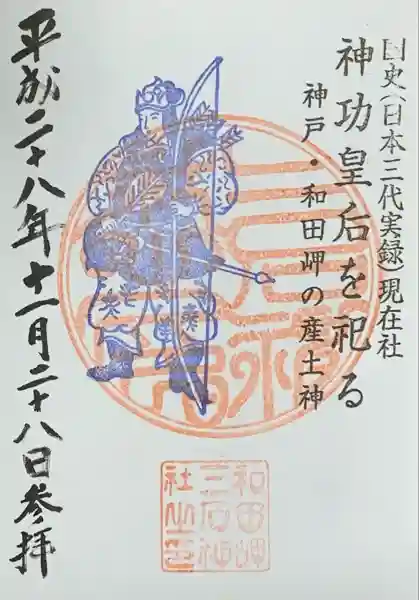 国史(日本三代実録)現在社
神功皇后を祀る
神戸・和田岬の産土神
和田岬
三石神
社之印
平成二十八年十一月二十八日参拝